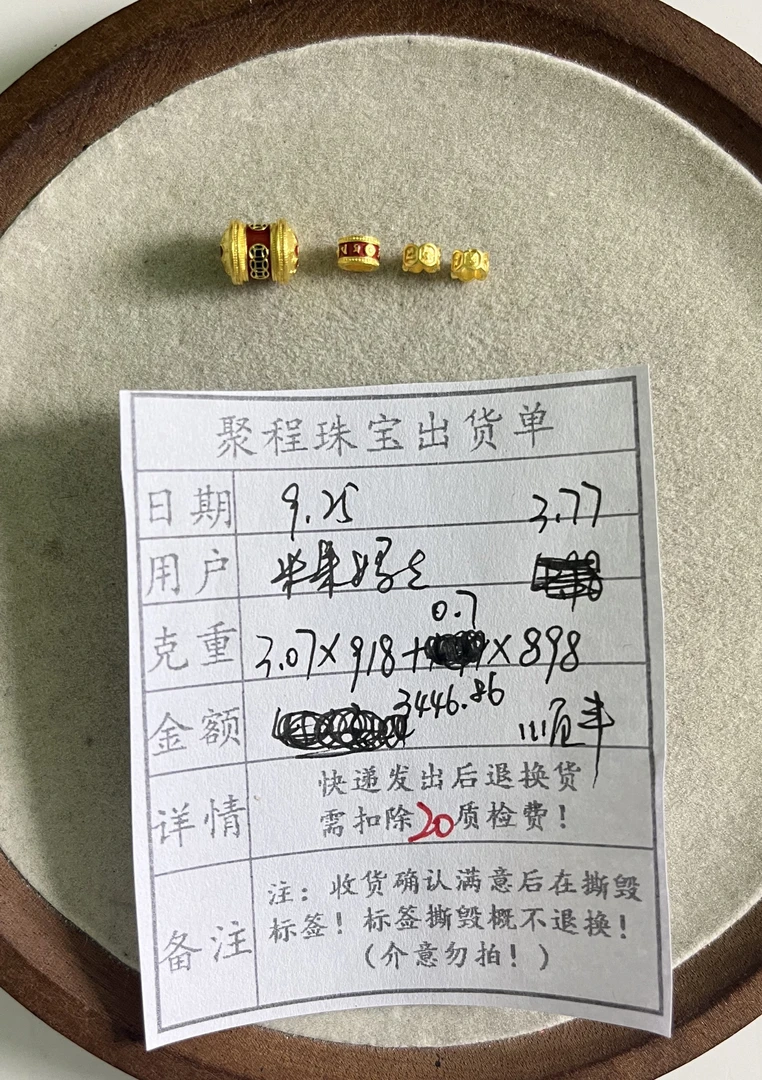 聚程珠宝出货单
日期 9.25 3.77
用户
克重 3.07×918+0.7×898
金额 3446.86 顺丰
详情 快递发出后退换货
需扣除20质检费！
备注 注：收货确认满意后在撕毁
标签！标签撕毁概不退换！
（介意勿拍！）